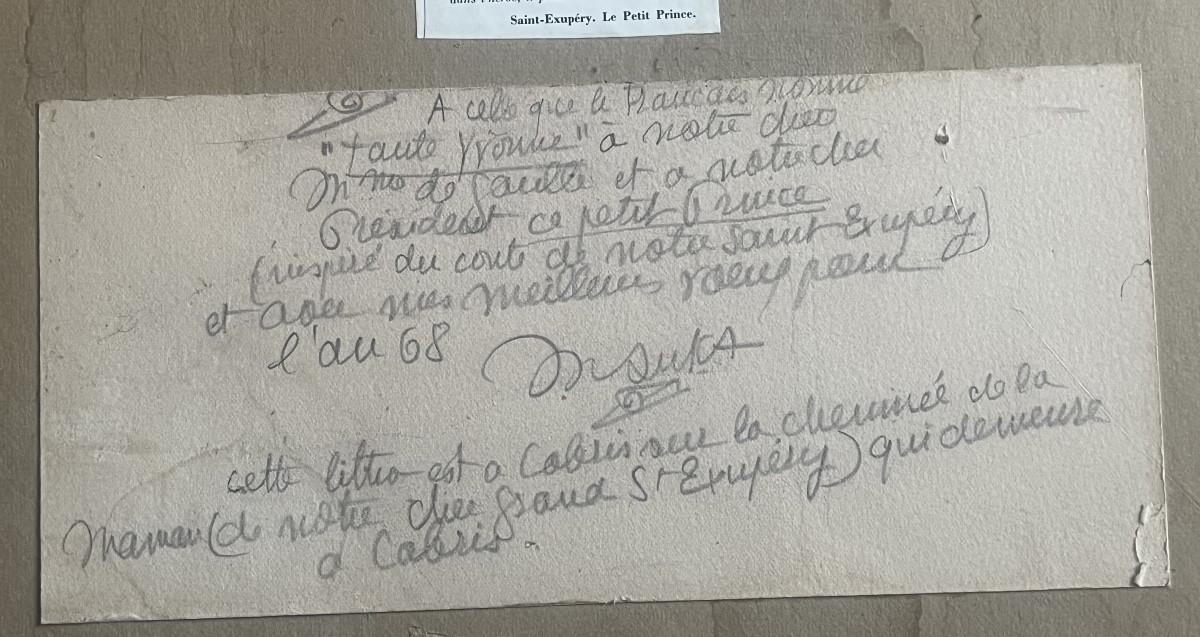 Saint-Exupéry. Le Petit Prince.
A celle que le Français nomme
"tante Yvonne" à notre chère
Mme de Gaulle et a notre cher
Président ce petit Prince
(inspiré du conte de notre Saint Exupéry)
et avec mes meilleurs voeux pour
l'an 68
cette litho est a Cabris sur la cheminée de la
Maman (de notre cher grand St Exupéry) qui demeure
a Cabris.